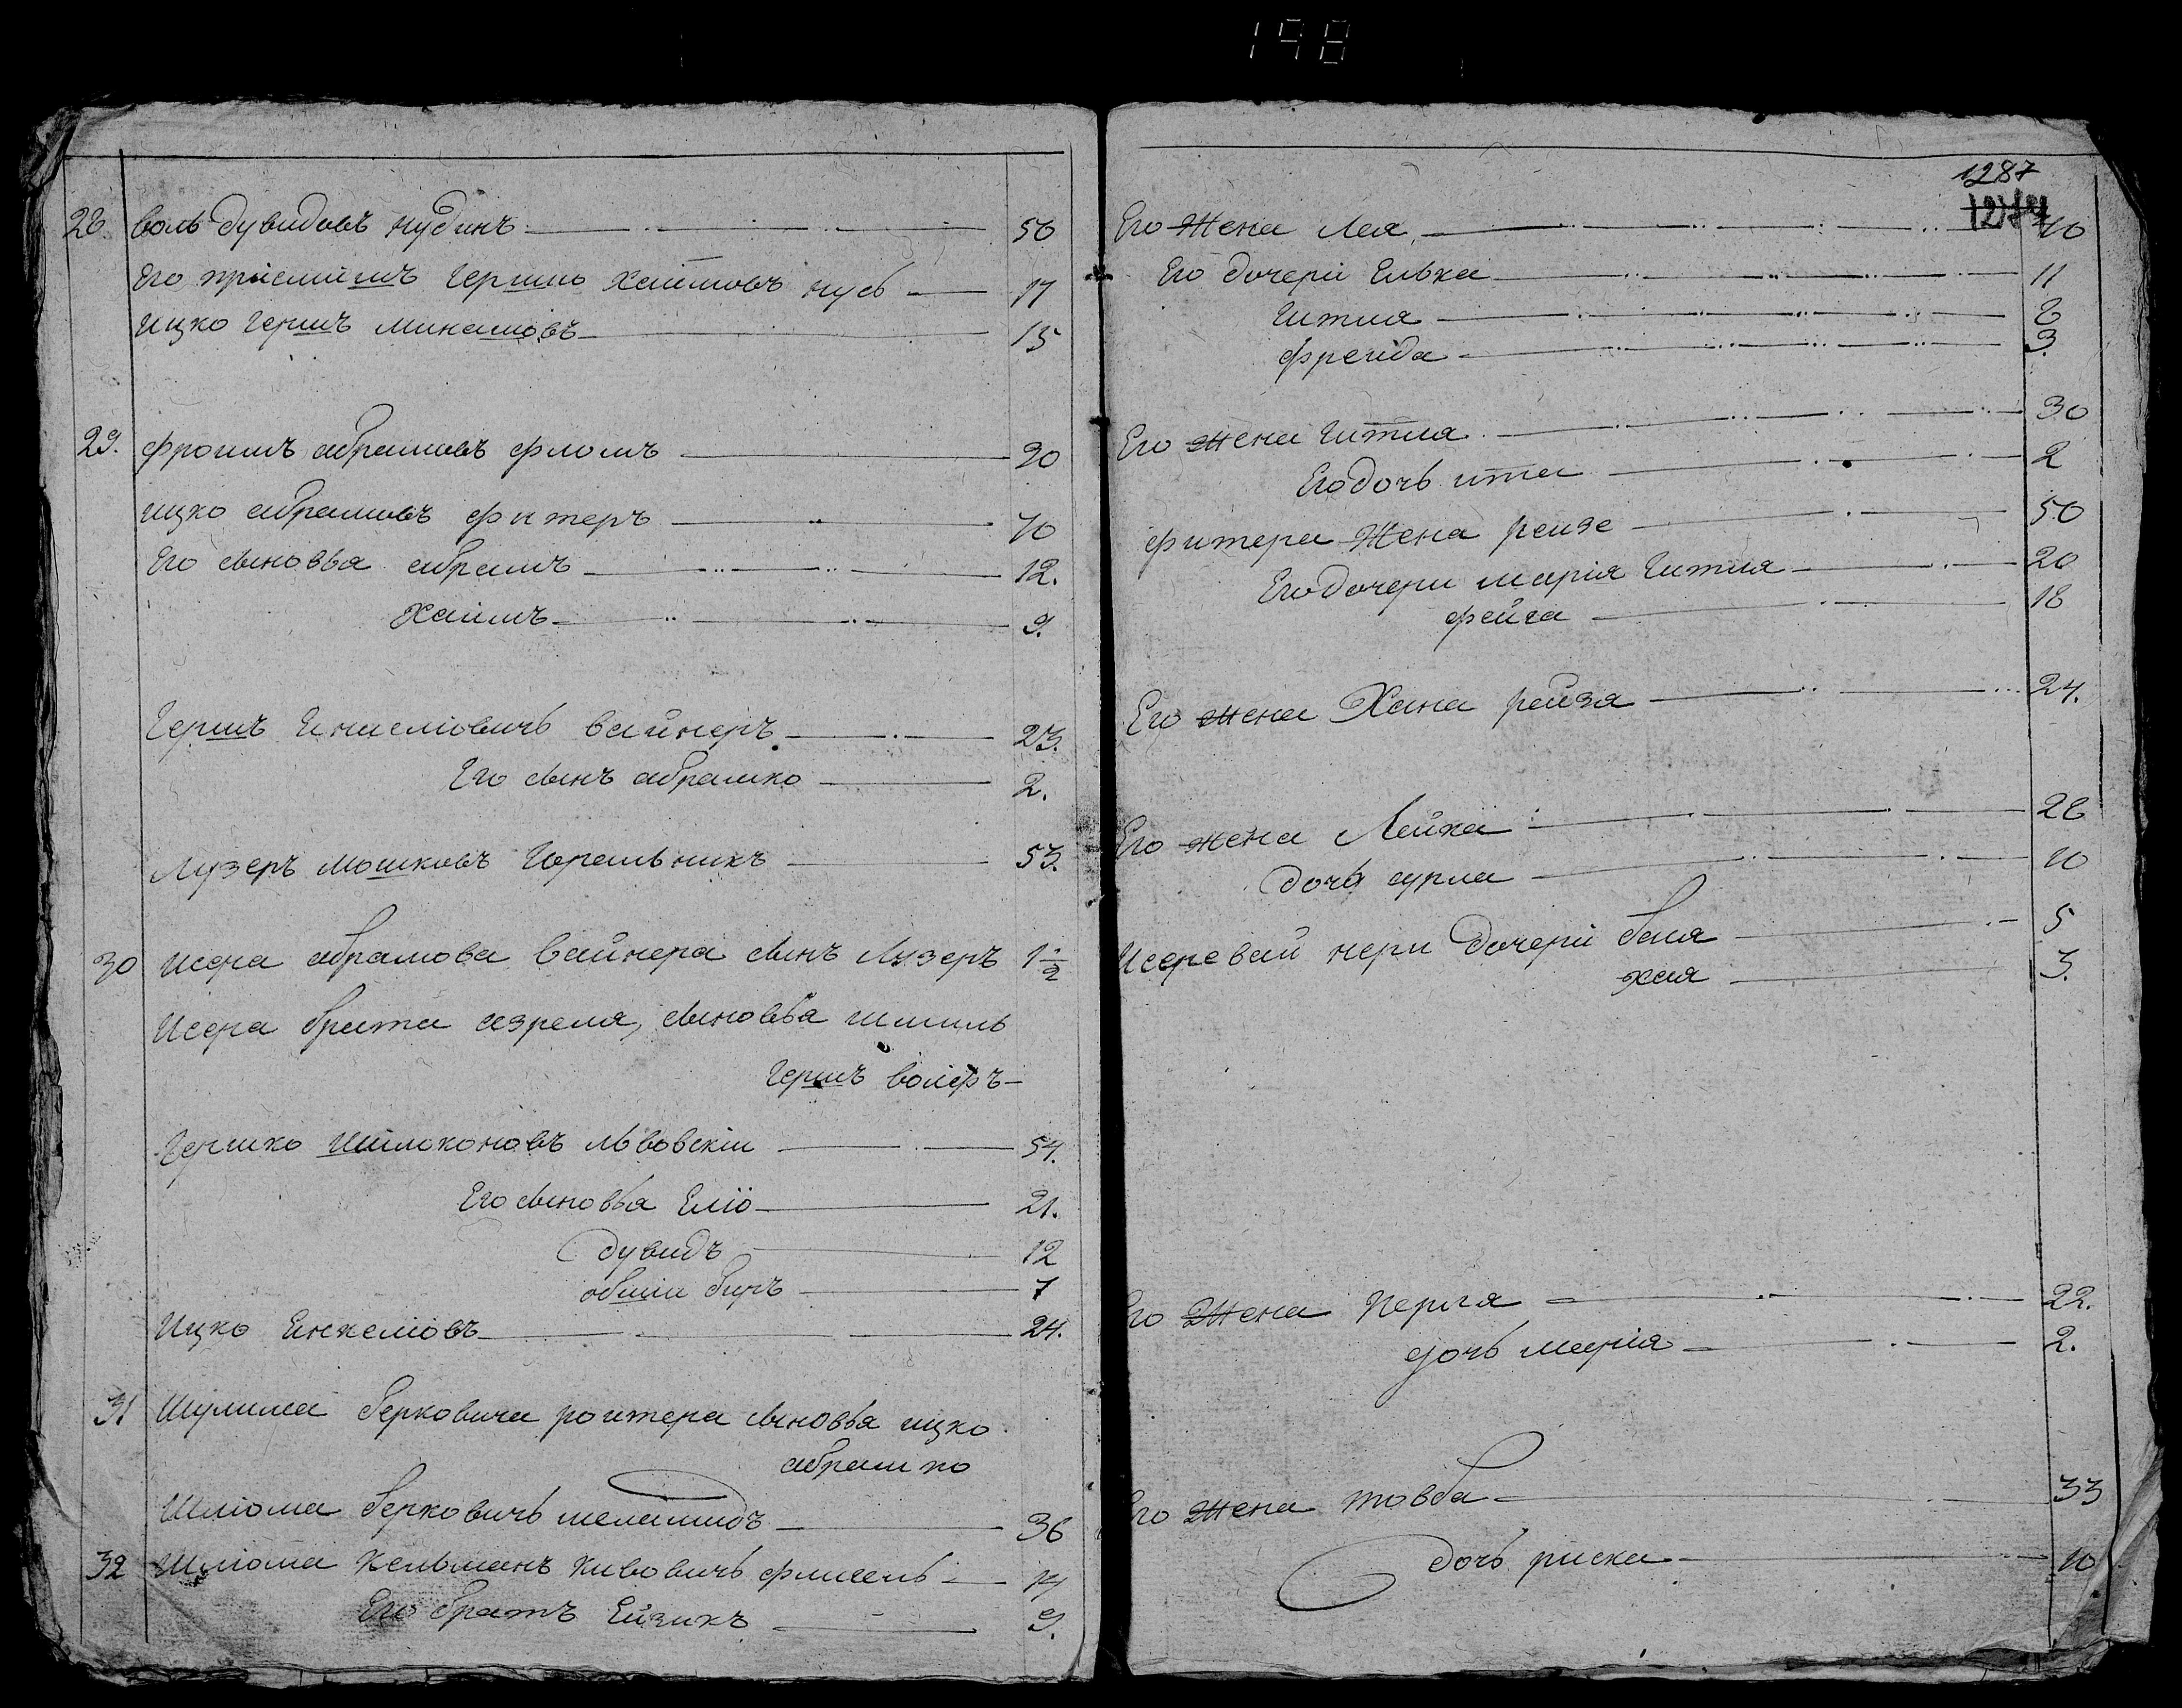 198
28 воль дувидовъ нудинъ 56
Его пріемишъ Гершко Хаимовъ нусь 17
ицко Гершъ Минашовъ 15
29. фроимъ абрамовъ фломъ 20
ицко абрамовъ фитеръ 40
Его сыновья абрамъ 12.
Хаимъ 9.
Гершъ Енкеліовичь вайнеръ 23.
Его сынъ абрамко 2.
Лузеръ мошковъ Горельникъ 53.
30 Исера абрамова вайнера сынъ Лузеръ 1 1/2
Исера брата изреля, сыновья шмиль
Гершъ волефъ
Гершко Шилохоновъ Львовскіи 54.
Его сыновья Еліо 21.
дувидъ 12
овшіи биръ 7
Ицко Енкеліовъ 24.
31 Шулима берковича роитера сыновья ицко
абрамко
Шліома берковичь меламидъ 36
32 Шліома Кельманъ Кивовичь фишель 14
Его братъ Ейзикъ 9.
1287
Его Жена Лея 40
Его дочери Елька 11
Гитля 8
фрейда 3.
Его жена Гитля 30
Его дочь ита 2
фитера Жена рейзе 50
Его дочери марія Гитля 20
фейга 18
Его жена Хана рейзя 24.
Его жена Лейка 28
дочь сурла 10
Исеревай нери дочери бася 5
хая 3.
Его Жена Перля 22.
дочь марія 2.
Его жена товба 33
дочь риска 10